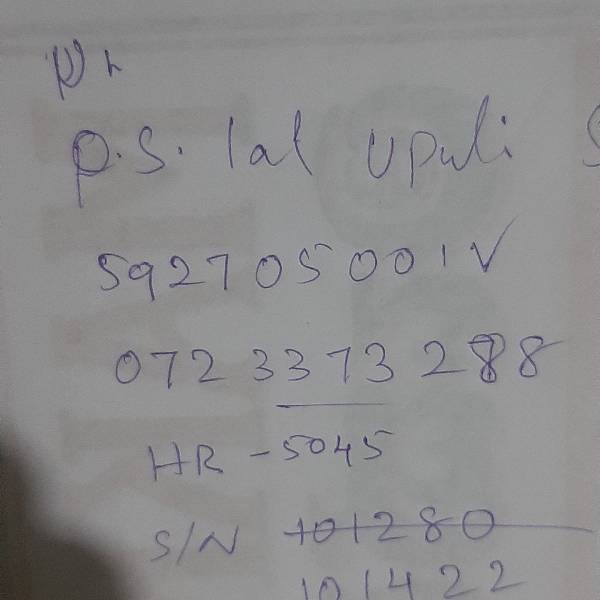 P.S. lal upuli S
592705001V
072 3373 288
HR - 5045
S/N 101280
101422